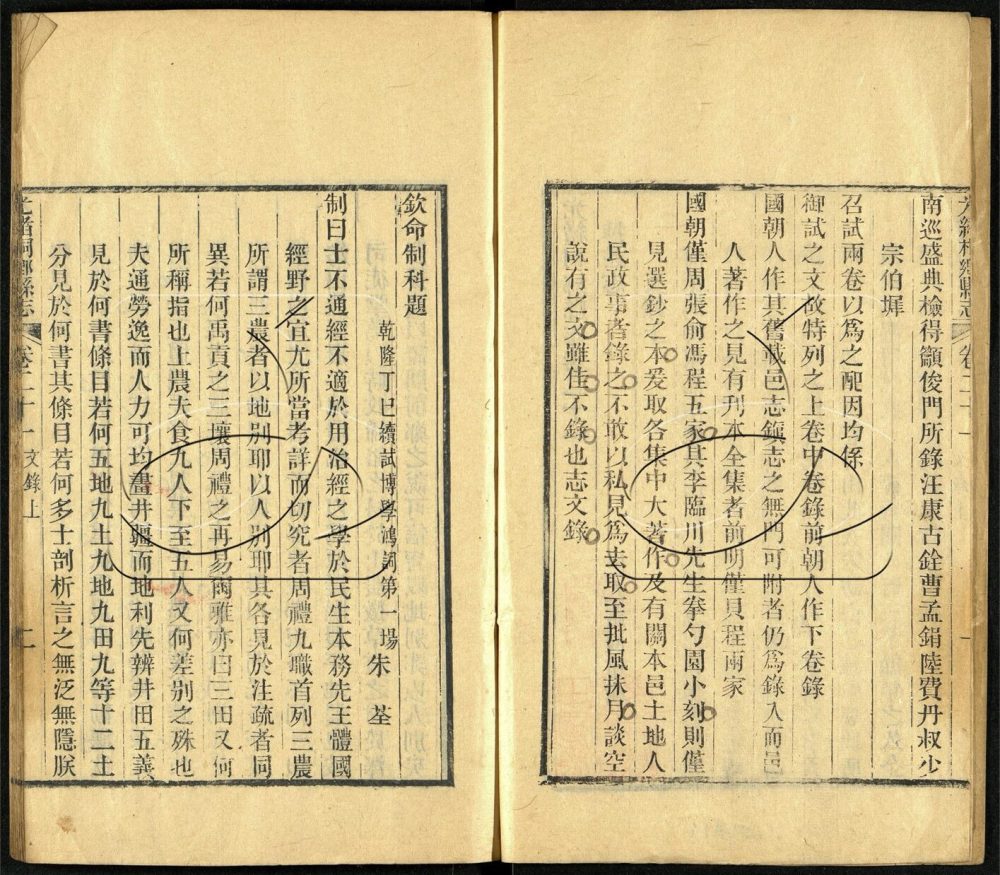 南巡盛典檢得籲俊門所錄汪康古銓曹孟鋗陸費丹叔少
宗伯墀
召試兩卷以爲之配因均係
御試之文故特列之上卷中卷錄前朝人作下卷錄
國朝人作其舊載邑志鎮志之無門可附者仍爲錄入而邑
人著作之見有刊本全集者前明僅貝程兩家
國朝僅周張俞馮程五家其李臨川先生拳勺園小刻則僅
見選鈔之本爰取各集中大著作及有關本邑土地人
民政事者錄之不敢以私見爲去取至批風抹月談空
說有之文雖佳不錄也志文錄
欽命制科題
乾隆丁巳續試博學鴻詞第一場朱荃
制曰士不通經不適於用治經之學於民生本務先王體國
經野之宜尤所當考詳而切究者周禮九職首列三農
所謂三農者以地別耶以人別耶其各見於注疏者同
異若何禹貢之三壤周禮之再易爾雅亦曰三田又何
所稱指也上農夫食九人下至五人又何差別之殊也
夫通勞逸而人力可均畫井疆而地利先辨井田五義
見於何書條目若何五地九土九地九田九等十二土
分見於何書其條目若何多士剖析言之無泛無隱朕
光緒桐鄉縣志 卷二十一 文錄上 二